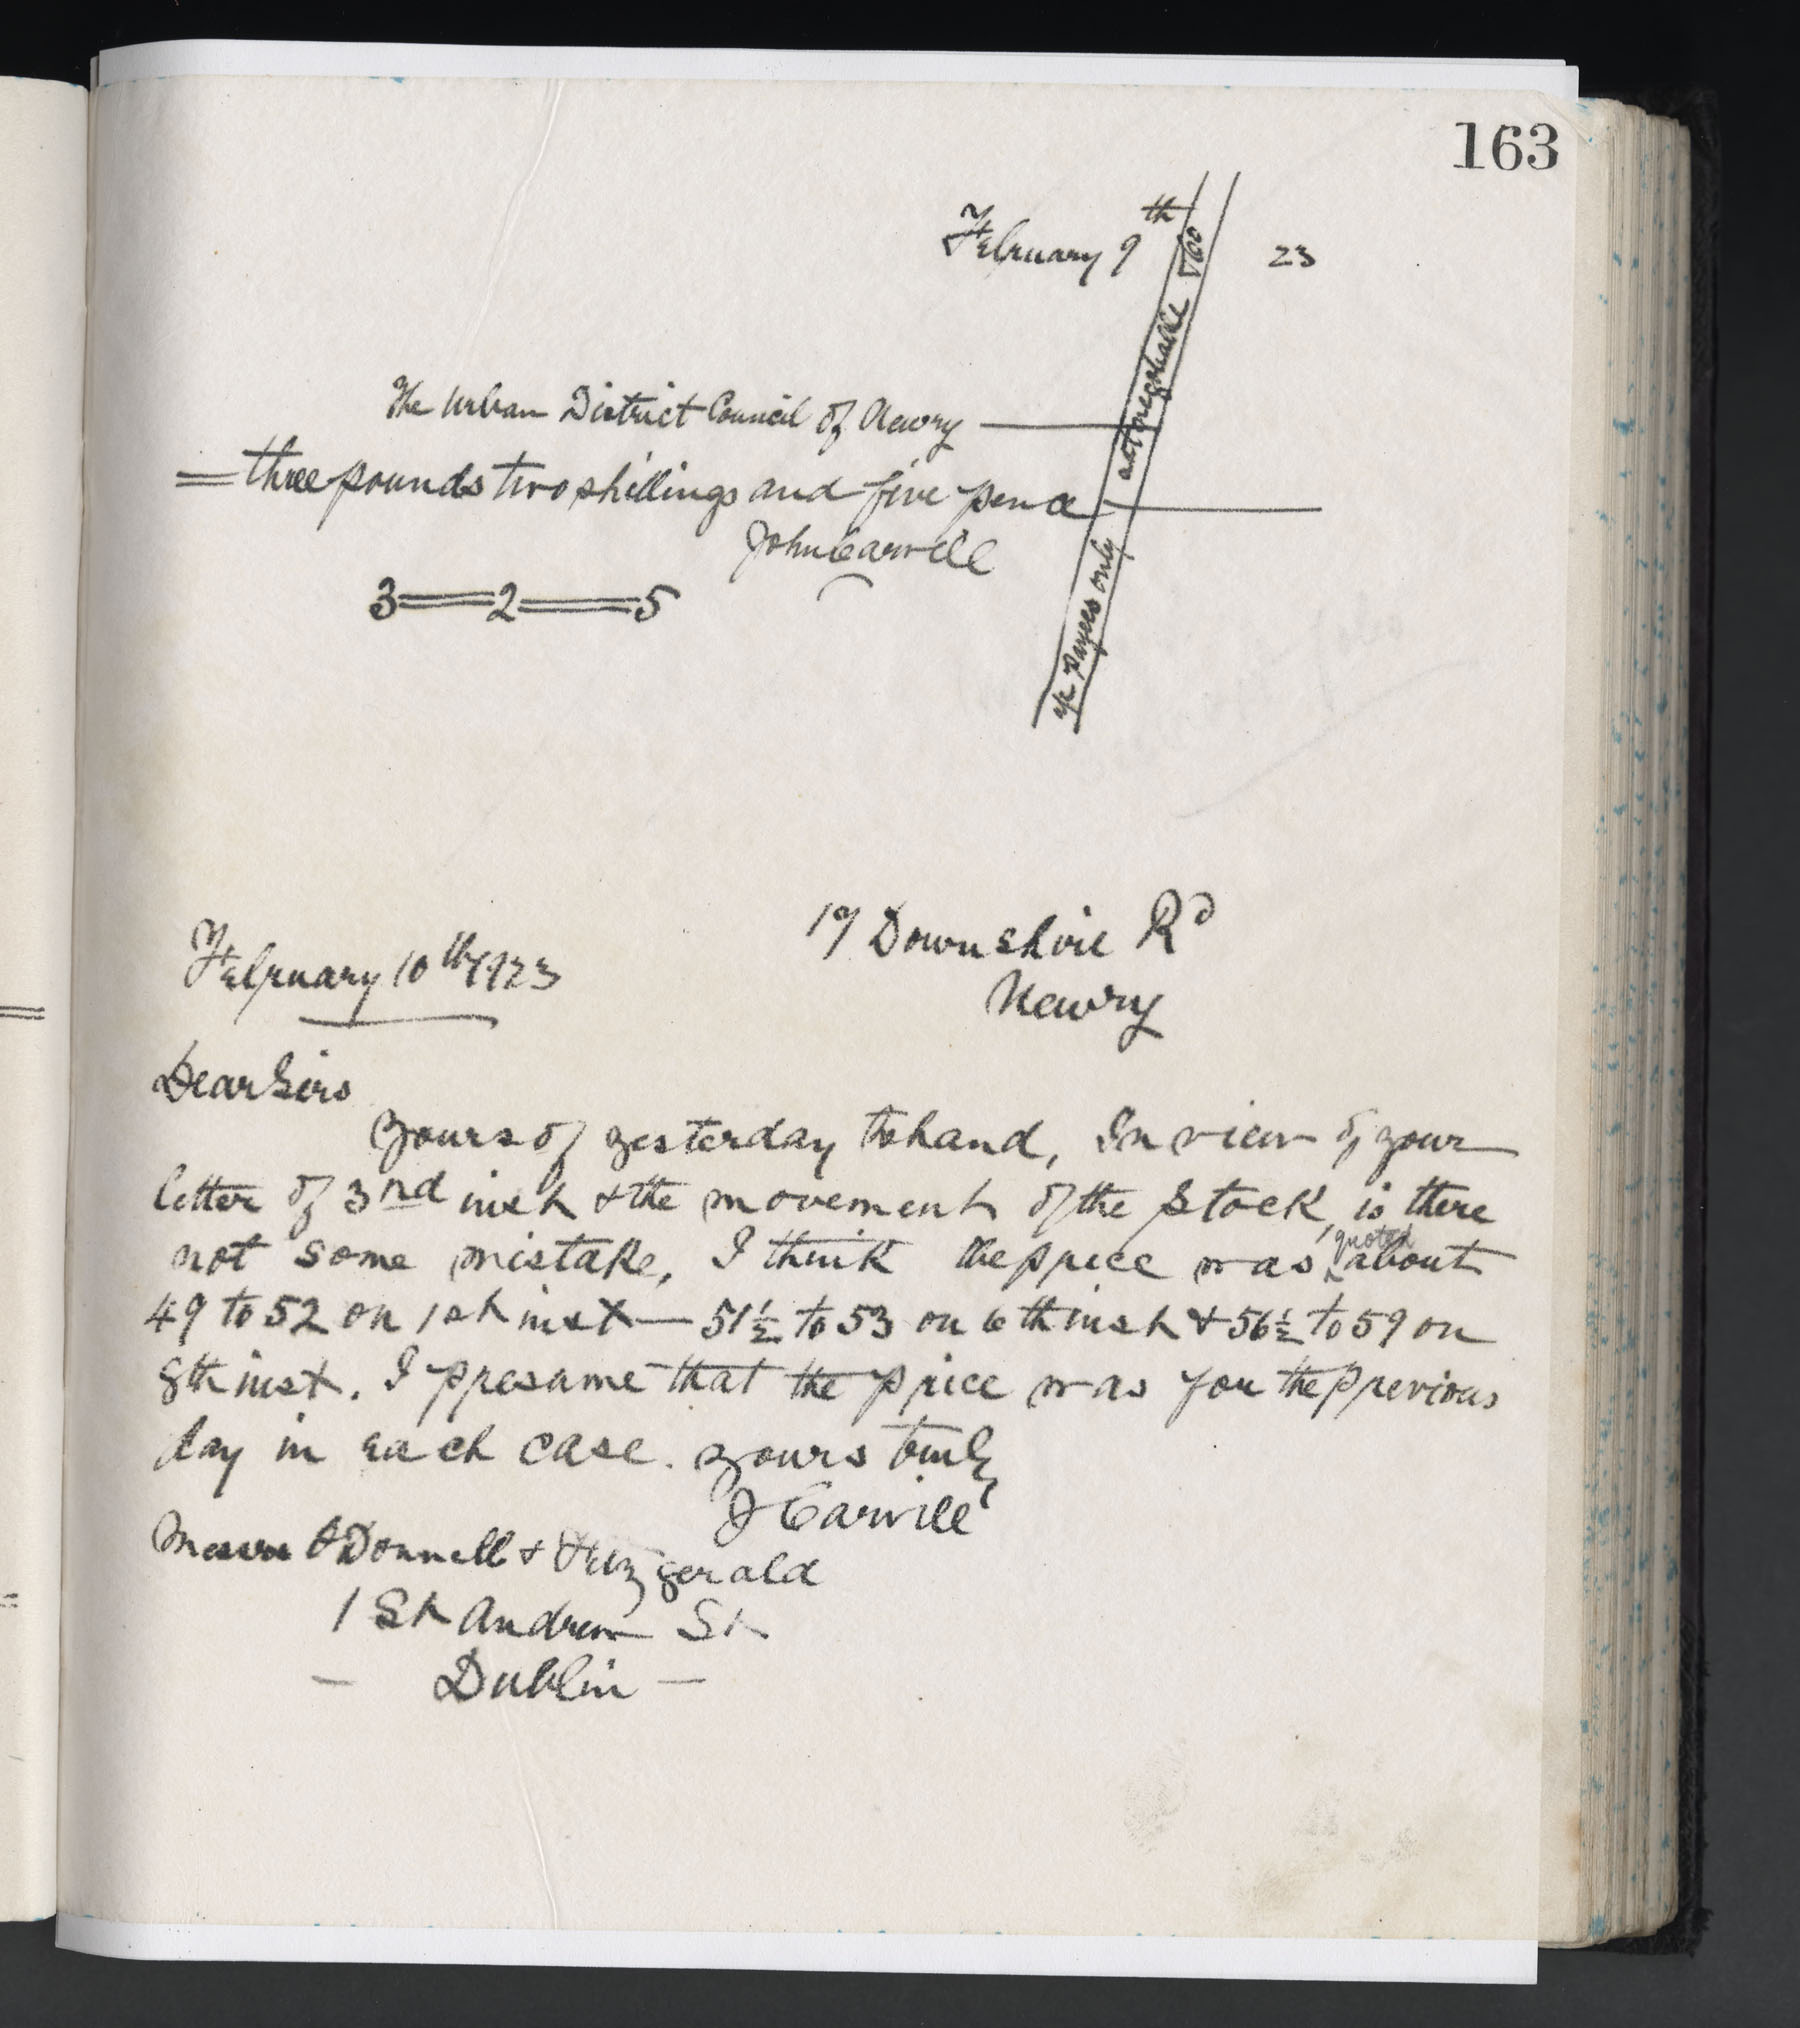 163
February 9th 23
The Urban District Council of Newry
= three pounds two shillings and five pence
John Carvill
3 == 2 == 5
a/c payees only not negotiable &Co
17 Downshire Rd
February 10th 1923
Newry
Dear Sirs
Yours of yesterday to hand, In view of your
letter of 3nd inst & the movement of the stock, is there
not some mistake, I think the price was quoted about
49 to 52 on 1st inst — 51½ to 53 on 6th inst & 56½ to 59 on
8th inst. I presume that the price was for the previous
day in each case. Yours truly
J Carvill
Messrs O'Donnell & Fitzgerald
1 St Andrew St
— Dublin —